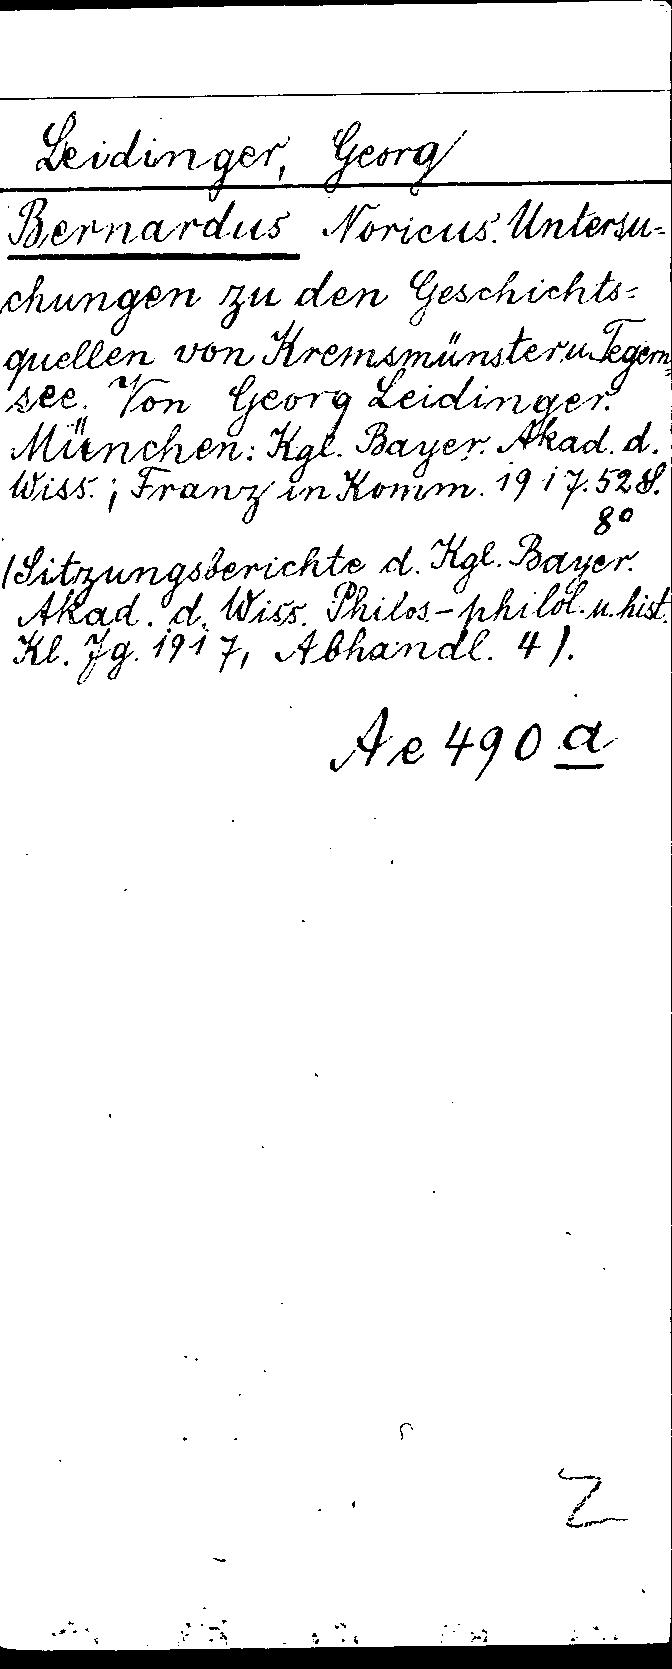 Leidinger, Georg
Bernardus Noricus. Untersu-
chungen zu den Geschichts-
quellen von Kremsmünster u. Tegern-
see. Von Georg Leidinger.
München: Kgl. Bayer. Akad. d.
Wiss.; Franz in Komm. 1917. 52 S.
8°
(Sitzungsberichte d. Kgl. Bayer.
Akad. d. Wiss. Philos.-philol. u. hist.
Kl. Jg. 1917, Abhandl. 4).
Ae 490 a
Z